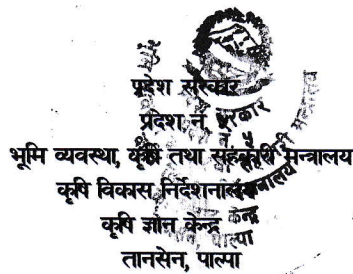 प्रदेश सरकार
प्रदेश नं. ५
भूमि व्यवस्था, कृषि तथा सहकारी मन्त्रालय
कृषि विकास निर्देशनालय
कृषि ज्ञान केन्द्र
तानसेन, पाल्पा